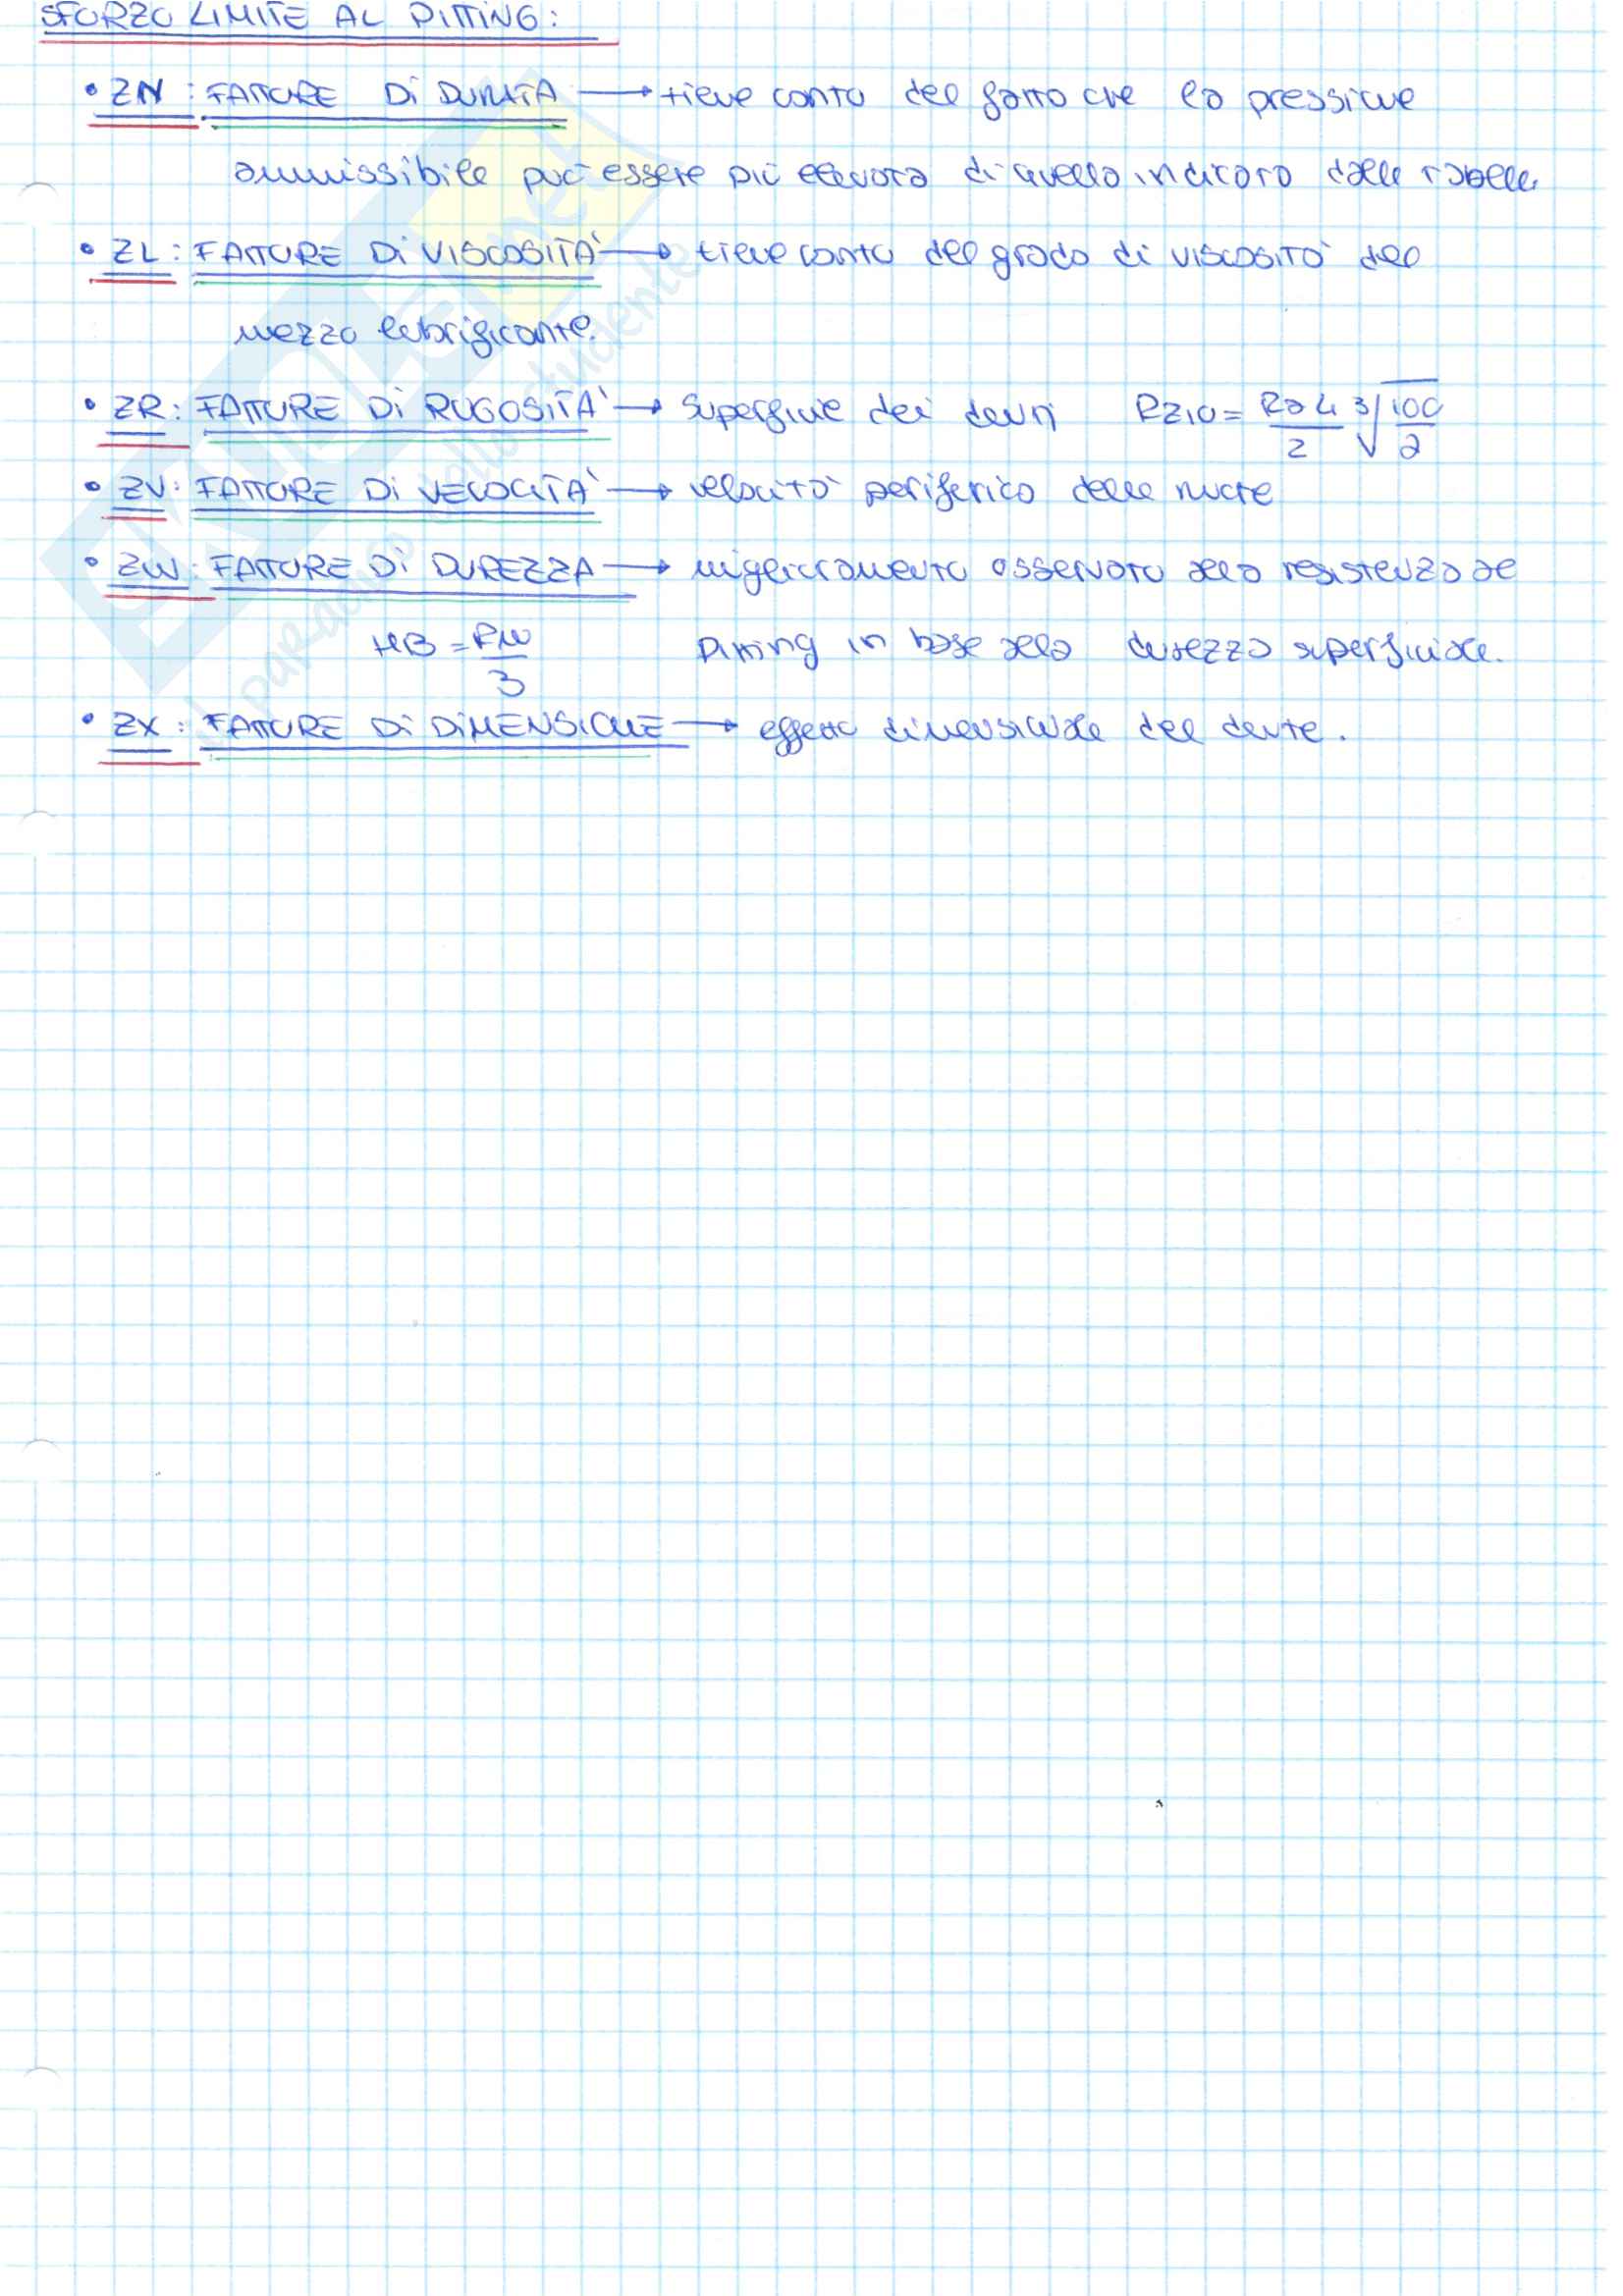 SFORZO LIMITE AL PITTING:
• ZN: FATTORE DI DURATA → tiene conto del fatto che la pressione
ammissibile può essere più elevata di quella indicata dalle tabelle
• ZL: FATTORE DI VISCOSITÀ → tiene conto del grado di viscosità del
mezzo lubrificante.
• ZR: FATTORE DI RUGOSITÀ → superficie dei denti RZ10 = Ra4/2 ∛100/2
• ZV: FATTORE DI VELOCITÀ → velocità periferica delle ruote
• ZW: FATTORE DI DUREZZA → miglioramento osservato della resistenza al
HB = RM/3 Pitting in base alla durezza superficiale.
• ZX: FATTORE DI DIMENSIONE → effetto dimensionale del dente.